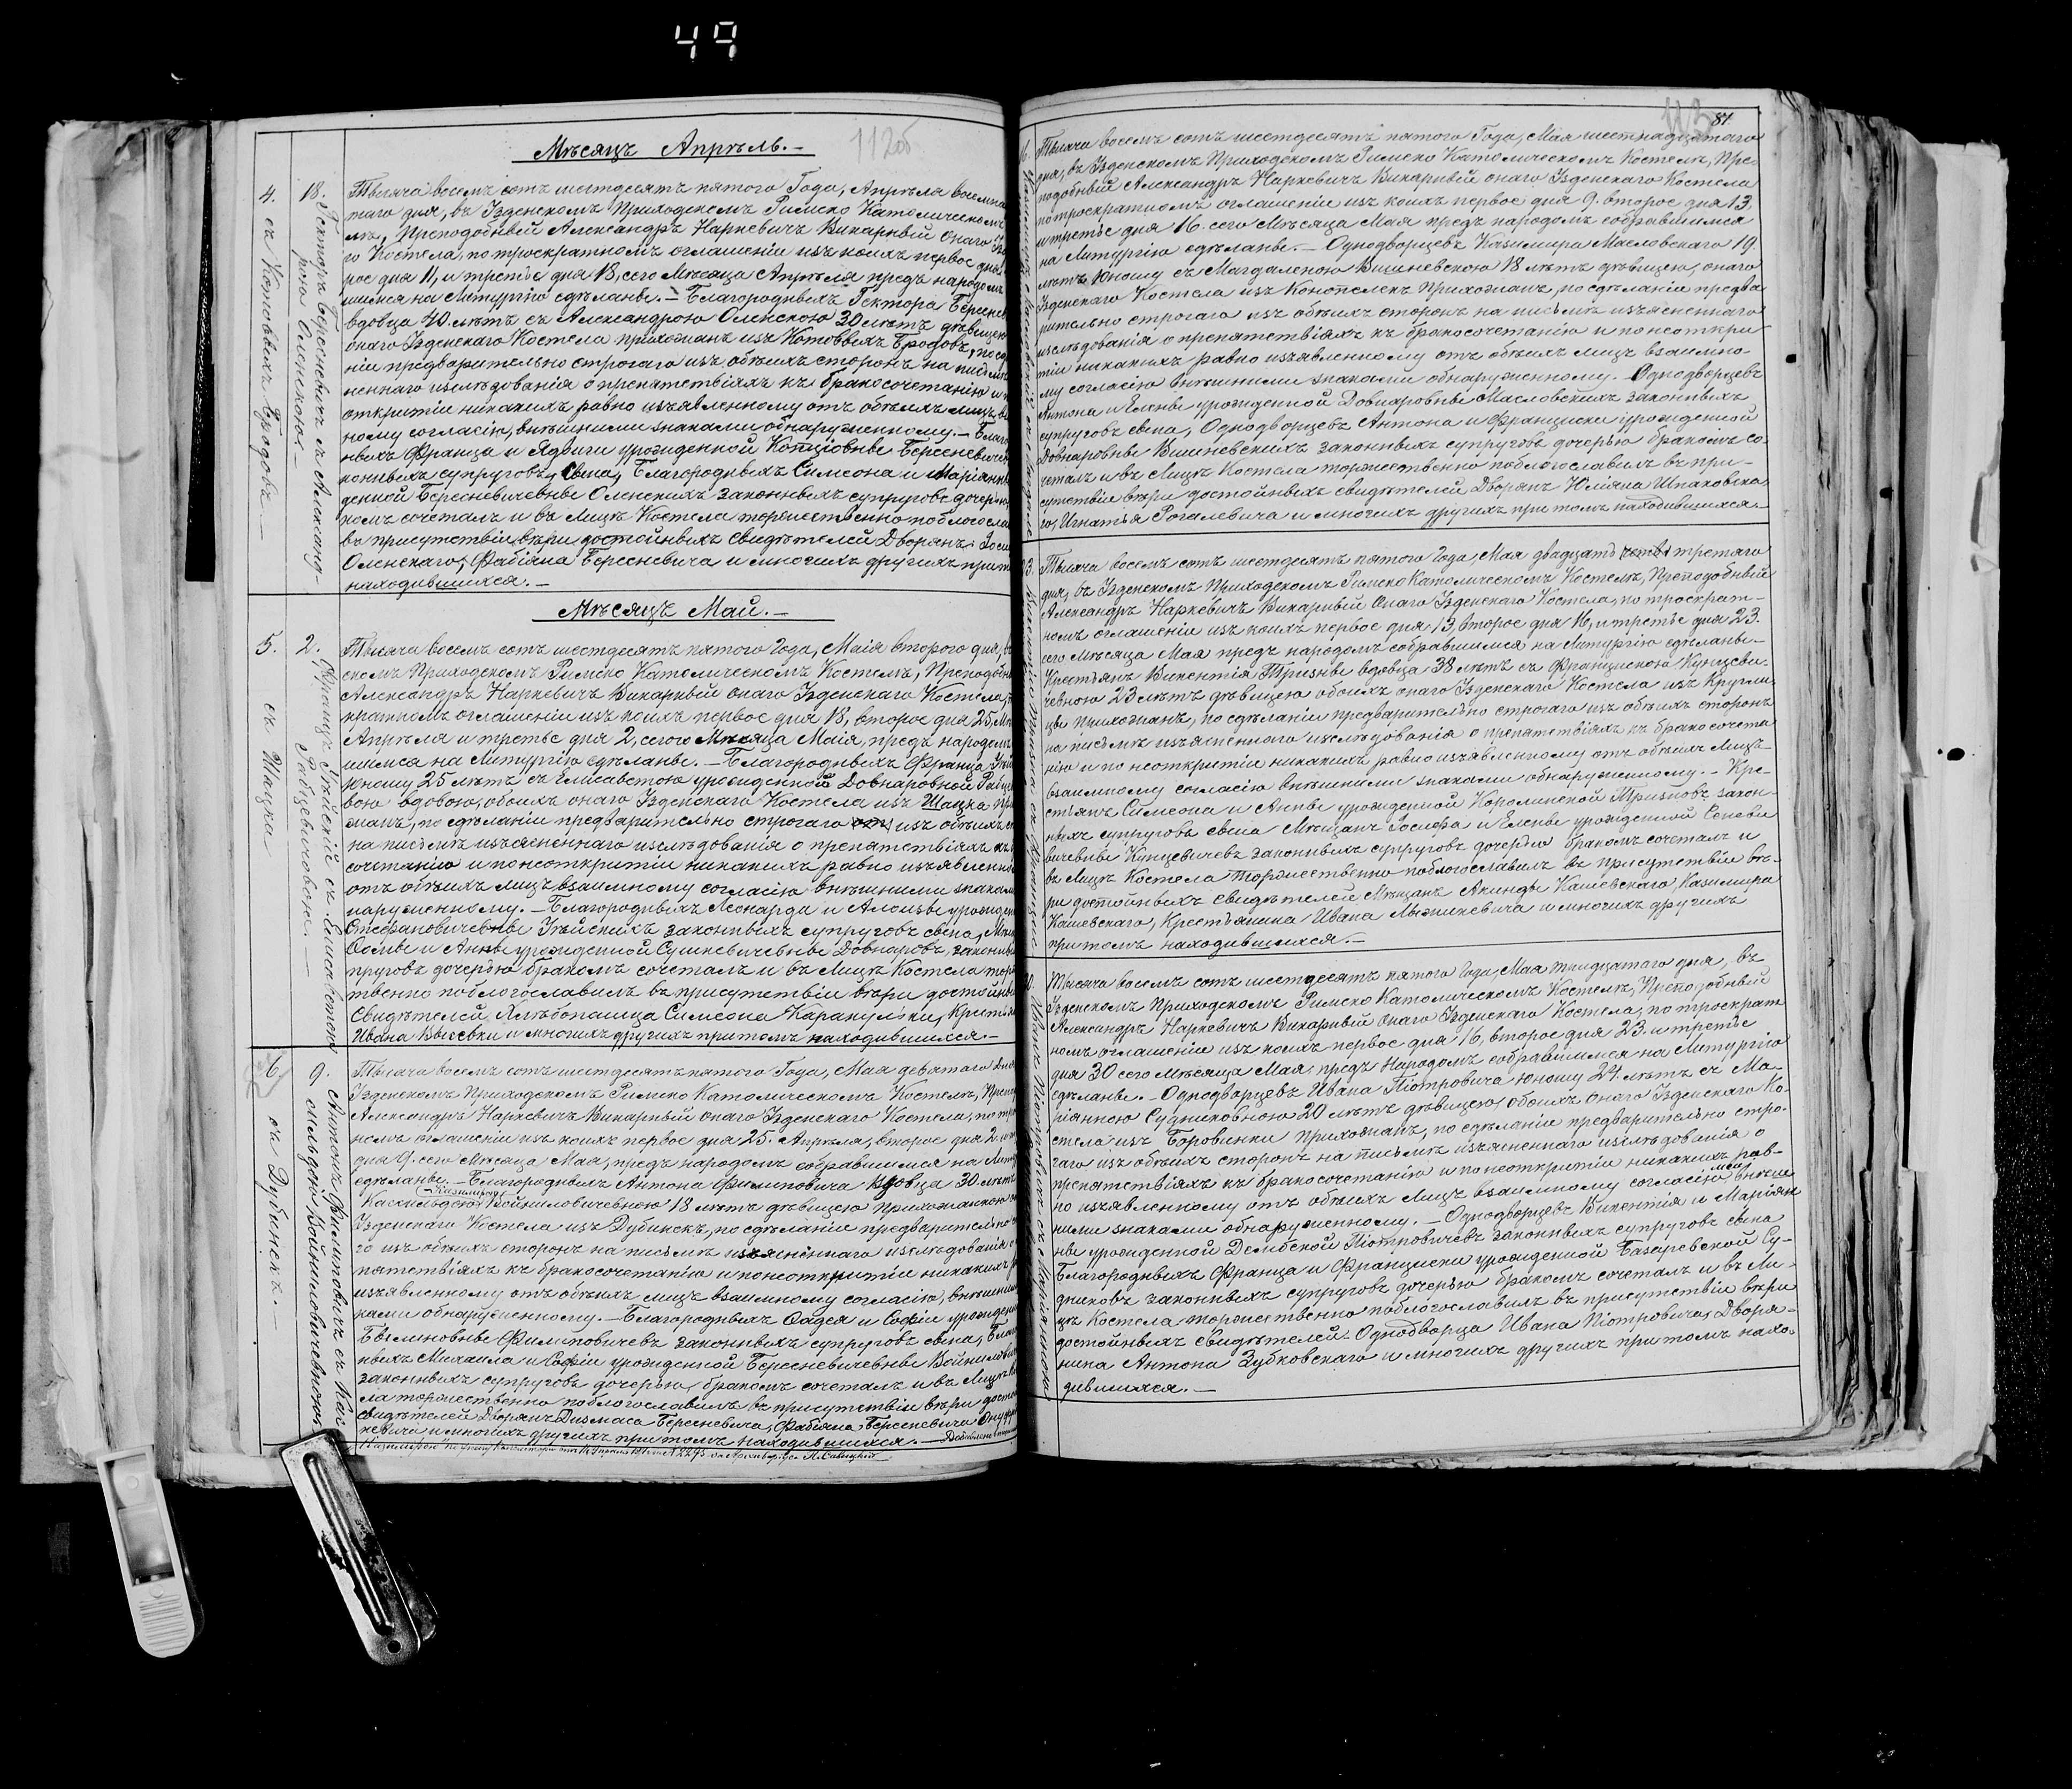 49
Мѣсяцъ Апрѣль. —
112об
4.
18.
Гекторъ Бересневичъ съ Александ-
рою Оленскою. —
съ Котовыхъ Бродовъ. —
Тысяча восемь сотъ шестдесятъ пятого Года, Апрѣля восемна
таго дня, въ Узденскомъ Приходскомъ Римско Католическомъ
лѣ, Преподобный Александръ Наркевичъ Викарный онаго
го Костела, по троекратномъ оглашеніи изъ коихъ первое дня
рое дня 11, и третье дня 18, сего Мѣсяца Апрѣля предъ народомъ
шимся на Литургію сдѣланые. — Благородныхъ Гектора Бересне
вдовца 40 лѣтъ съ Александрою Оленскою 30 лѣтъ дѣвицею
онаго Узденскаго Костела прихожанъ изъ Котовыхъ Бродовъ, по сд
ніи предварительно строгаго изъ обѣихъ сторонъ на письмѣ
неннаго изслѣдованія о препятствіяхъ къ бракосочетанію и
открытіи никакихъ равно изъявленному отъ обѣихъ лицъ вза
ному согласію, внѣшними знаками обнаруженному. — Благо
ныхъ Франца и Ядвиги урожденной Котціовны Бересневич
конныхъ супруговъ, сына, Благородныхъ Симеона и Маріянны
денной Бересневичевны Оленскихъ законныхъ супруговъ дочерью
комъ сочеталъ и въ Лицѣ Костела торжественно поблогосла
въ присутствіи вѣри достойныхъ свидѣтелей Дворянъ: Іоси
Оленскаго, Фабіяна Бересневича и многихъ другихъ при т
находившихся. —
Мѣсяцъ Май. —
5.
2.
Францъ Уѣйскій съ Елисаветою
Рабцевичовою. —
съ Шацка
Тысяча восемь сотъ шестдесятъ пятого Года, Маія второго дня, въ
скомъ Приходскомъ Римско Католическомъ Костелѣ, Преподобный
Александръ Наркевичъ Викарный онаго Узденскаго Костела,
кратномъ оглашеніи изъ коихъ первое дня 18, второе дня 25, Мѣ
Апрѣля и третье дня 2, сего Мѣсяца Маія, предъ народомъ
шимся на Литургію сдѣланые. — Благородныхъ Франца
юношу 25 лѣтъ съ Елисаветою урожденной Довнаровной Рабце
вою вдовою, обоихъ онаго Узденскаго Костела изъ Шацка при
жанъ, по сдѣланіи предварительно строгаго изъ обѣихъ
на письмѣ изъясненнаго изслѣдованія о препятствіяхъ къ
сочетанію и по неоткрытіи никакихъ равно изъявленно
отъ обѣихъ лицъ взаимному согласію внѣшними знаками
наруженному. — Благородныхъ Леонарда и Алоизы урожден
Стефановичевны Уѣйскихъ законныхъ супруговъ сына,
и Анны урожденной Сушкевичевны Довнаровъ, законны
пруговъ дочерью бракомъ сочеталъ и въ Лицѣ Костела торж
твенно поблогославилъ въ присутствіи вѣри достойны
Свидѣтелей, Хлѣбопашца Симеона Каракульки, Крестья
Ивана Высевки и многихъ другихъ притомъ находившихся. —
6.
9.
Антонъ Филиповичъ съ Кас
сильдою Войниловичевною
съ Дубинекъ. —
Тысяча восемь сотъ шестдесятъ пятого Года, Мая девятого дня
Узденскомъ Приходскомъ Римско Католическомъ Костелѣ, Препо
Александръ Наркевичъ Викарный онаго Узденскаго Костела, по тр
номъ оглашеніи изъ коихъ первое дня 25. Апрѣля, второе дня 2.
дня 9. сего Мѣсяца Мая, предъ народомъ собравшимся на Литу
сдѣланые. — Благородныхъ Антона Филиповича вдовца 30 лѣтъ
Войниловичевною 18 лѣтъ дѣвицею прихожанкою
Узденскаго Костела изъ Дубинекъ, по сдѣланіи предварительно
го изъ обѣихъ сторонъ на письмѣ изъясненнаго изслѣдованія
пятствіяхъ къ бракосочетанію и по неоткрытіи никакихъ
изъявленному отъ обѣихъ лицъ взаимному согласію, внѣшни
ками обнаруженному. — Благородныхъ Фадея и Софіи урожден
Филиповичевъ законныхъ супруговъ сына, Благо
ныхъ Михаила и Софіи урожденной Бересневичевны Войнилови
законныхъ супруговъ дочерью, бракомъ сочеталъ и въ Лицѣ
ла торжественно поблогославилъ въ присутствіи вѣри досто
свидѣтелей Дворянъ Дизмаса Бересневича, Фабіяна Бересневича
кевича и многихъ другихъ притомъ находившихся. —
113
81
Тысяча восемь сотъ шестдесятъ пятого Года, Мая шестнадцатаго
дня, въ Узденскомъ Приходскомъ Римско Католическомъ Костелѣ, Пре-
подобный Александръ Наркевичъ Викарный онаго Узденскаго Костела
по троекратномъ оглашеніи изъ коихъ первое дня 9. второе дня 13.
и третье дня 16. сего Мѣсяца Мая предъ народомъ собравшимся
на Литургію сдѣланые. — Однодворцевъ Казимира Масловскаго 19
лѣтъ юношу съ Магдаленою Вишневскою 18 лѣтъ дѣвицею, онаго
Узденскаго Костела изъ Конотелекъ Прихожанъ, по сдѣланіи предва
рительно строгаго изъ обѣихъ сторонъ на письмѣ изъясненнаго
изслѣдованія о препятствіяхъ къ бракосочетанію и по неоткры
тіи никакихъ равно изъявленному отъ обѣихъ лицъ взаимно-
му согласію внѣшними знаками обнаруженному. — Однодворцевъ
Антона и Елены урожденной Довнаровны Масловскихъ законныхъ
супруговъ сына, Однодворцевъ Антона и Франциски урожденной
Довнаровны Вишневскихъ законныхъ супруговъ дочерью бракомъ со-
четалъ и въ Лицѣ Костела торжественно поблогославилъ въ при-
сутствіи вѣри достойныхъ свидѣтелей Дворянъ Юліяна Шпаковска
го, Игнатія Рогалевича и многихъ другихъ при томъ находившихся. —
Тысяча восемь сотъ шестдесятъ пятого Года, Мая двадцать третяго
дня, въ Узденскомъ Приходскомъ Римско Католическомъ Костелѣ, Преподобный
Александръ Наркевичъ Викарный Онаго Узденскаго Костела, по троекрат-
номъ оглашеніи изъ коихъ первое дня 13, второе дня 16, и третье дня 23.
сего Мѣсяца Мая предъ народомъ собравшимся на Литургію сдѣланы-
Крестьянъ Викентія Тризны вдовца 38 лѣтъ съ Францискою Кунцеви-
чевною 23 лѣтъ дѣвицею обоихъ онаго Узденскаго Костела изъ Кругли-
цы прихожанъ, по сдѣланіи предварительно строгаго изъ обѣихъ сторонъ
на письмѣ изъясненнаго изслѣдованія о препятствіяхъ къ бракосочета
нію и по неоткрытіи никакихъ равно изъявленному отъ обѣихъ лицъ
взаимному согласію внѣшними знаками обнаруженному. — Кре-
стьянъ Симеона и Анны урожденной Каролинской Тризновъ закон-
ныхъ супруговъ сына Мѣщанъ Іосифа и Елены урожденной
Кунцевичевъ законныхъ супруговъ дочерью бракомъ сочеталъ и
въ Лицѣ Костела торжественно поблогославилъ въ присутствіи вѣ-
ри достойныхъ свидѣтелей Мѣщанъ Кашевскаго, Казимира
Кашевскаго, Крестьянина Ивана и многихъ другихъ
притомъ находившихся. —
Тысяча восемь сотъ шестдесятъ пятого Года, Мая тридцатого дня, въ
Узденскомъ Приходскомъ Римско Католическомъ Костелѣ, Преподобный
Александръ Наркевичъ Викарный онаго Узденскаго Костела, по троекрат
номъ оглашеніи изъ коихъ первое дня 16, второе дня 23. и третье
дня 30 сего Мѣсяца Мая, предъ Народомъ собравшимся на Литургію
сдѣланые. — Однодворцевъ Ивана Піотровича юношу 24 лѣтъ съ Ма-
ріянною Судниковною 20 лѣтъ дѣвицею, обоихъ Онаго Узденскаго Ко-
стела изъ Боровинки прихожанъ, по сдѣланіи предварительно стро-
гаго изъ обѣихъ сторонъ на письмѣ изъясненнаго изслѣдованія о
препятствіяхъ къ бракосочетанію и по неоткрытіи никакихъ рав-
но изъявленному отъ обѣихъ лицъ взаимному согласію внѣш
ними знаками обнаруженному. — Однодворцевъ Викентія и Маріян
ны урожденной Дембской Піотровичевъ законныхъ супруговъ сына
Благородныхъ Франца и Франциски урожденной Базаревской Су-
дниковъ законныхъ супруговъ дочерью бракомъ сочеталъ и въ Ли-
цѣ Костела торжественно поблогославилъ въ присутствіи вѣри
достойныхъ свидѣтелей. Однодворца Ивана Піотровича, Дворя-
нина Антона Зубковскаго и многихъ другихъ при томъ нахо-
дившихся. —